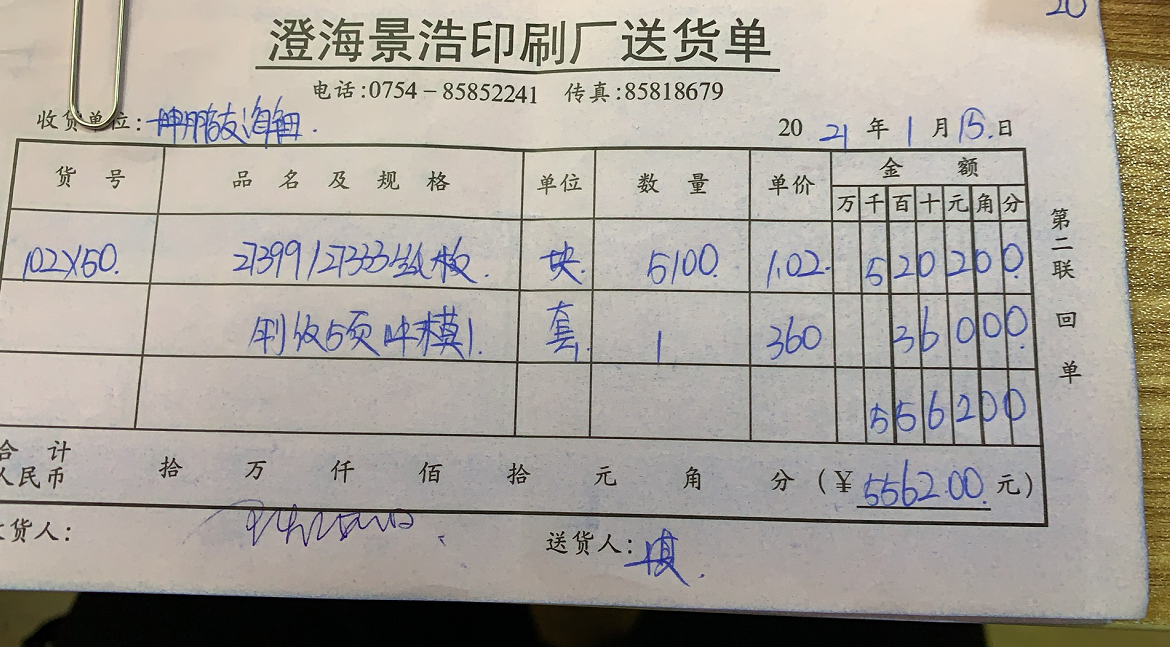 20
澄海景浩印刷厂送货单
电话:0754-85852241 传真:85818679
收货单位:
2021年1月15.日
货号 品名及规格 单位 数量 单价 金额
万千百十元角分
102X50. 21399/27333 板. 块. 5100. 1.02. 520200.
5页冲模1. 套. 1 360 36000.
556200
合计
人民币 拾 万 仟 佰 拾 元 角 分(¥5562.00.元)
货人: 送货人:
第二联 回单